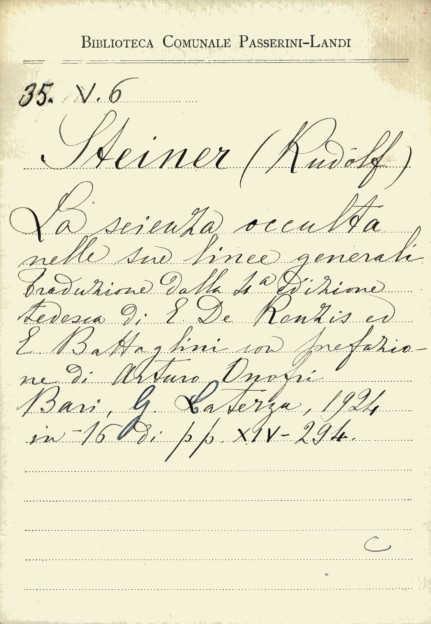 BIBLIOTECA COMUNALE PASSERINI-LANDI
35. V. 6
Steiner (Rudolf)
La scienza occulta
nelle sue linee generali
Traduzione dalla 4ª edizione
tedesca di E. De Renzis ed
E. Battaglini con prefazio-
ne di Arturo Onofri
Bari, G. Laterza, 1924
in-16 di pp. XIV-294.
C